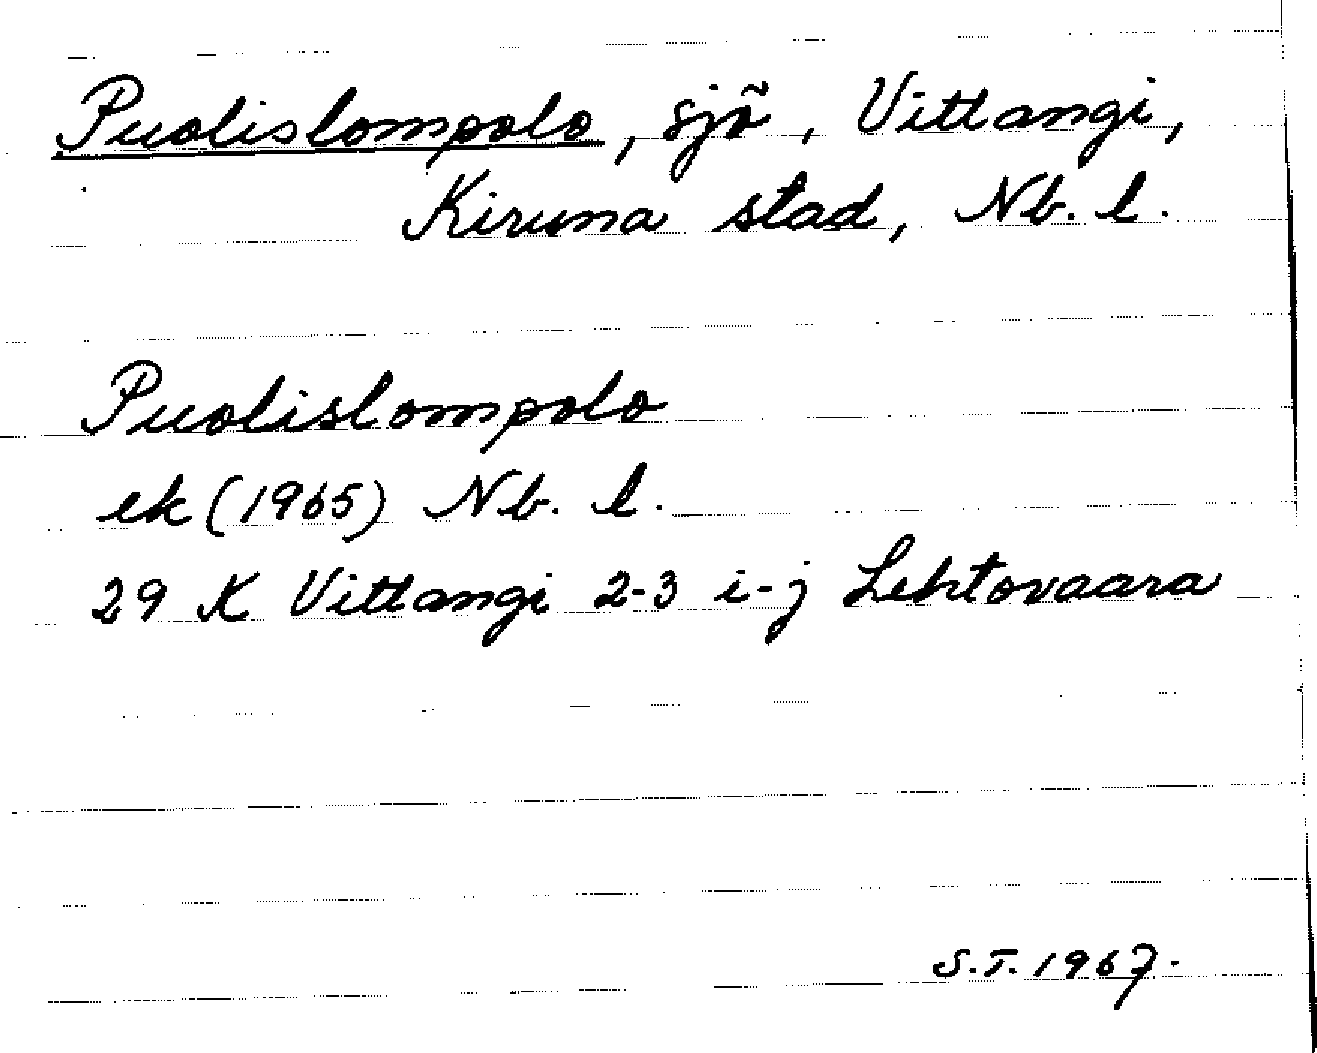 Puolislompolo, sjö, Vittangi,
Kiruna stad, Nb. l.
Puolislompolo
ek (1965) Nb. l.
29 K Vittangi 2-3 i-j Lehtovaara
S.T. 1967.